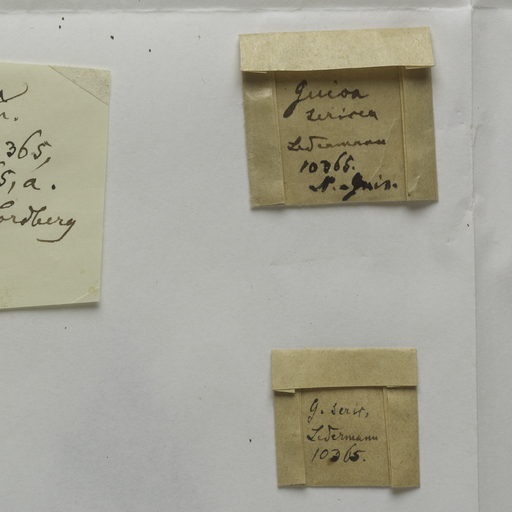 n.
365,
5, a.
ordberg
Guioa
sericea
Ledermann
10365.
N.-Guin.
G. seric,
Ledermann
10365.